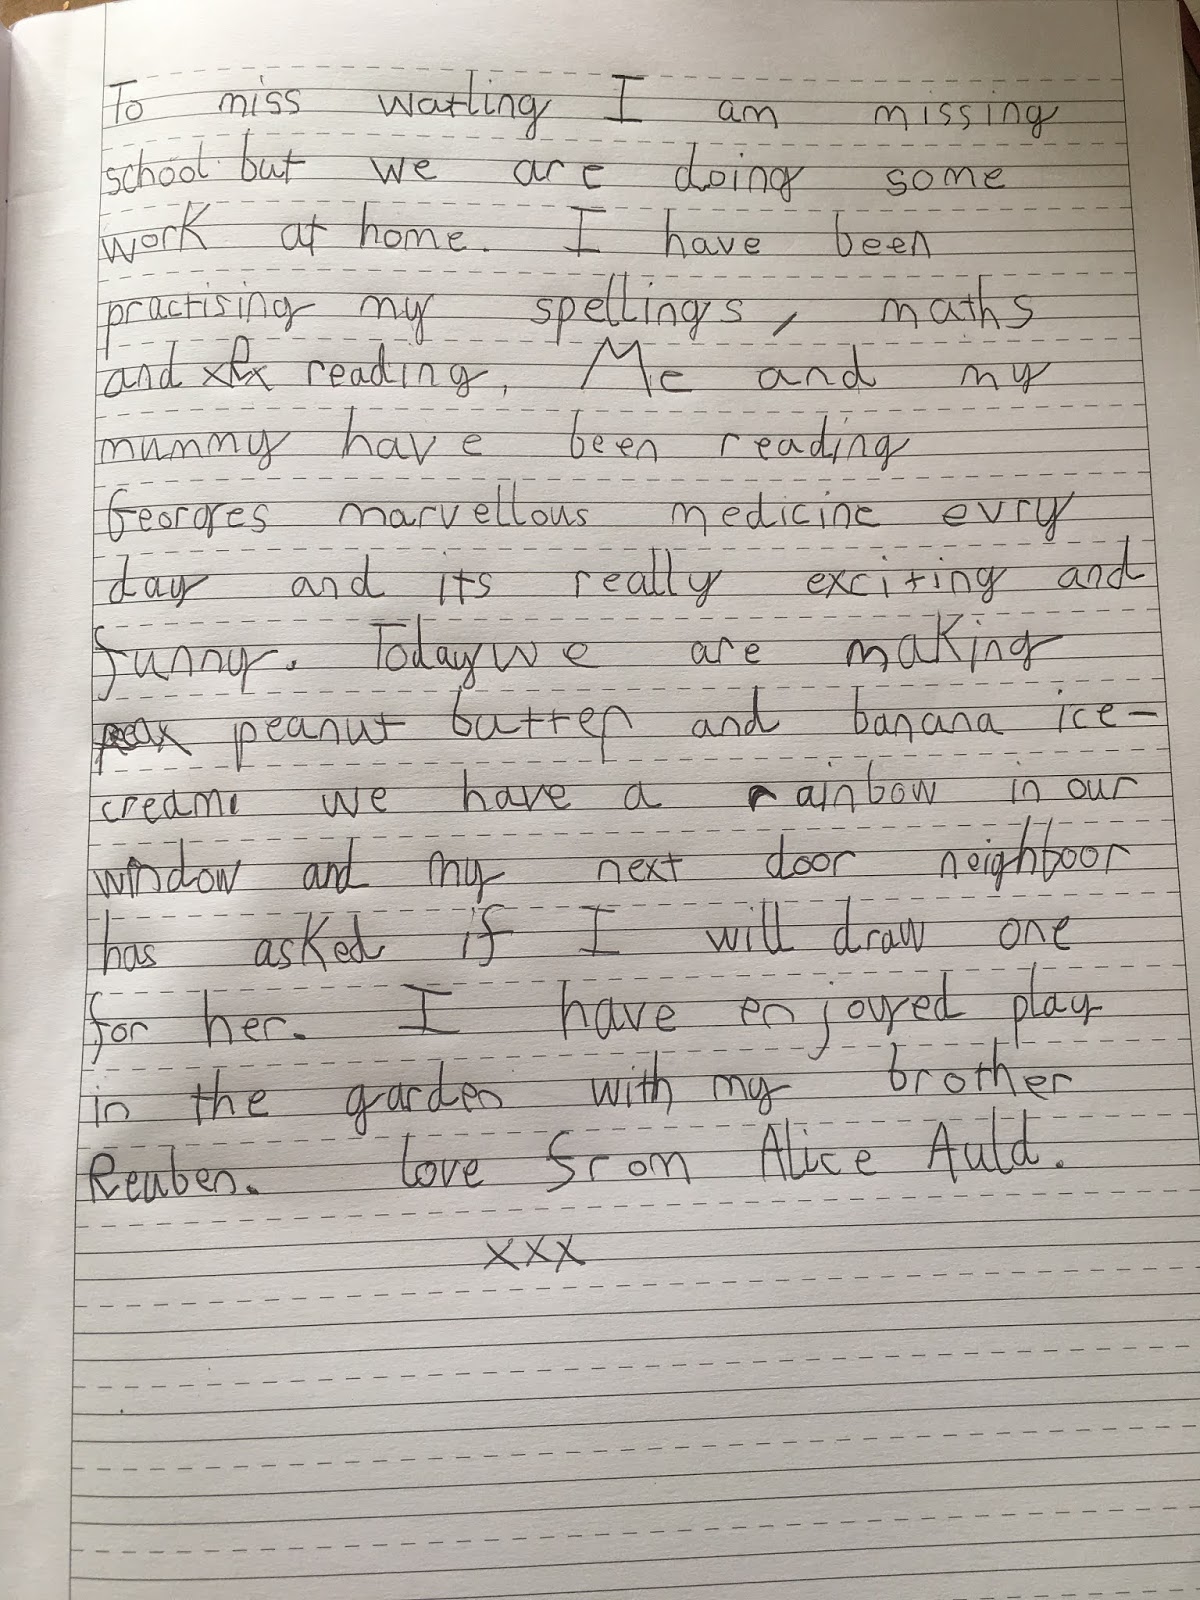 To miss watling I am missing
school but we are doing some
work at home. I have been
practising my spellings, maths
and reading. Me and my
mummy have been reading
Georges marvellous medicine evry
day and its really exciting and
funny. Today we are making
peanut butter and banana ice-
creame we have a rainbow in our
window and my next door neighboor
has asked if I will draw one
for her. I have enjoyed play
in the garden with my brother
Reuben. love from Alice Auld.
xxx